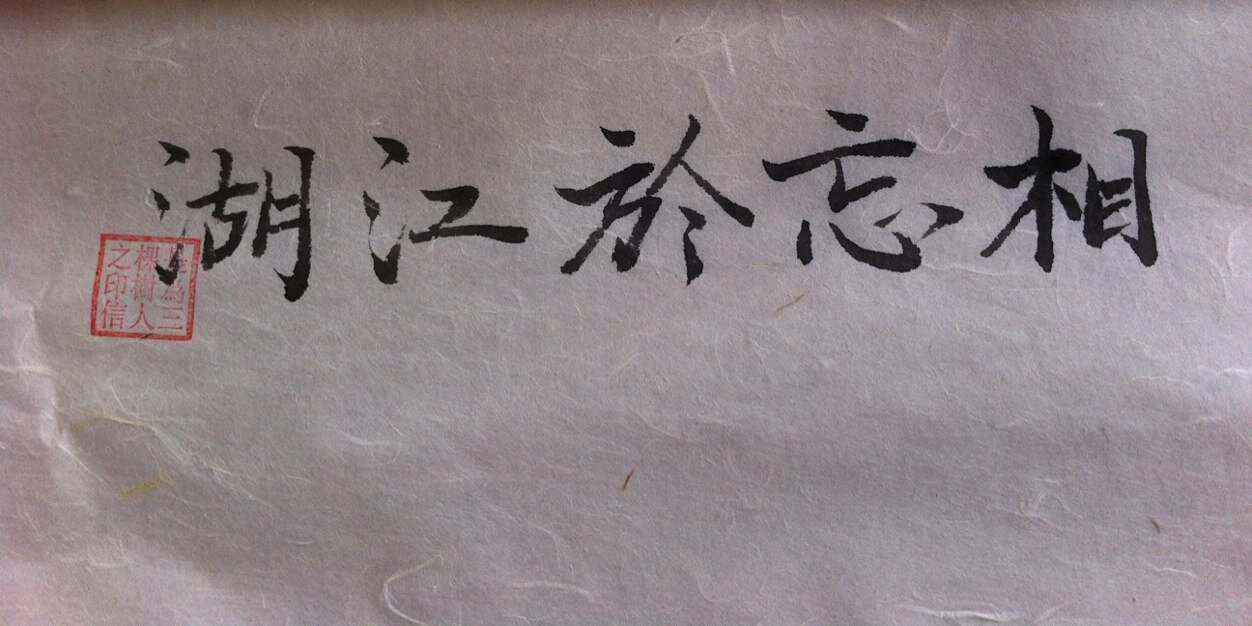 相忘於江湖
為三
棵樹人
之印信